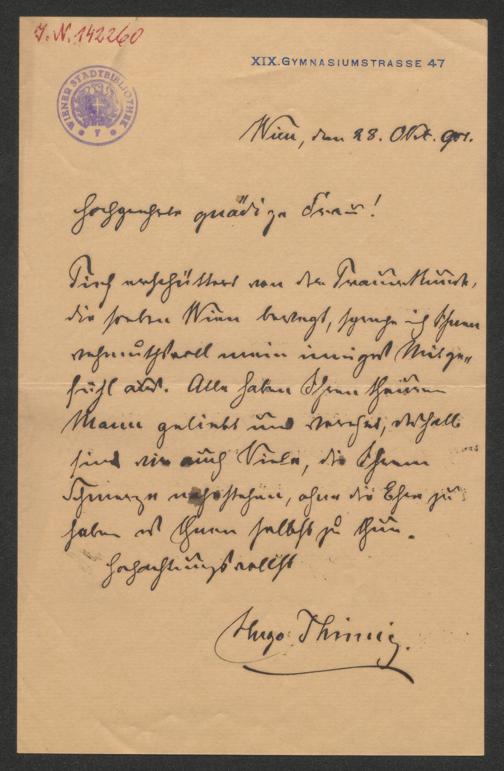 J.N. 142260
WIENER STADTBIBLIOTHEK
XIX. GYMNASIUMSTRASSE 47
Wien, den 28. Okt. 901.
Hochgeehrte gnädige Frau!
Tief erschüttert von der Trauerkunde,
die soeben Wien bewegt, spreche ich Ihnen
wehmuthsvoll mein inniges Mitge-
fühl aus. Alle haben Ihren theuren
Mann geliebt und verehrt, deshalb
sind wir auch Viele, die Ihrem
Schmerze nahestehen, ohne die Ehre zu
haben es Ihnen selbst zu thun.
Hochachtungsvollst
Hugo Thimig.